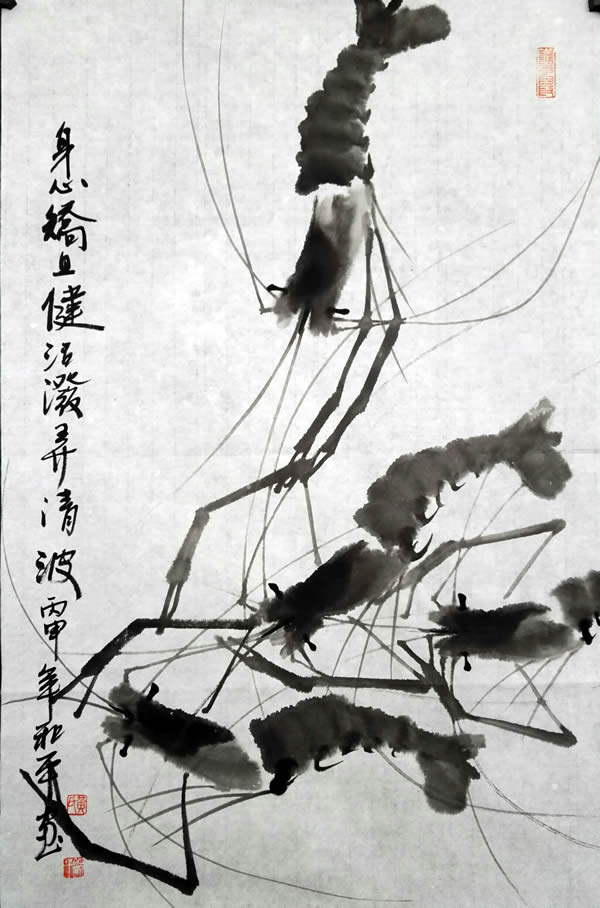 身心矯且健活潑弄清波丙申年和平画